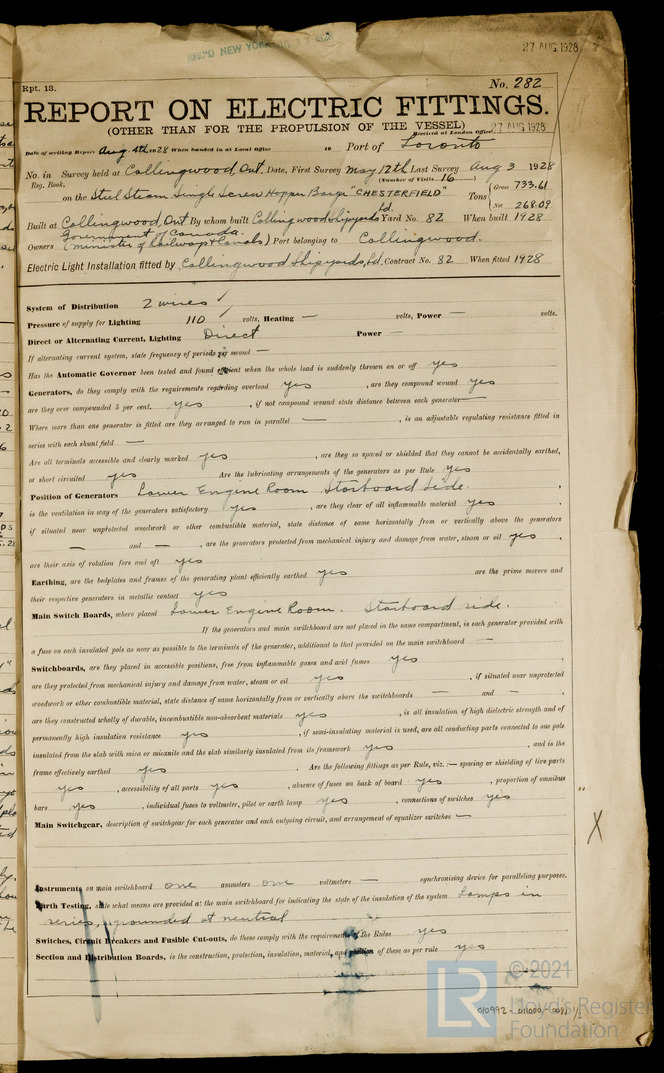 REC'D NEW YORK 1928
27 AUG 1928
Rpt. 13.
No. 282
REPORT ON ELECTRIC FITTINGS.
(OTHER THAN FOR THE PROPULSION OF THE VESSEL)
Received at London Office 27 AUG 1928
Date of writing Report Aug. 4th 1928 When handed in at Local Office 19 Port of Toronto
No. in Survey held at Collingwood, Ont. Date, First Survey May 12th Last Survey Aug 3 1928
Reg. Book. (Number of Visits 16)
on the Steel Steam Single Screw Hopper Barge "CHESTERFIELD" Tons { Gross 733.61
Net 268.09
Built at Collingwood, Ont By whom built Collingwood Shipyards Ld. Yard No. 82 When built 1928
Government of Canada.
Owners (Minister of Railways & Canals) Port belonging to Collingwood.
Electric Light Installation fitted by Collingwood Shipyards, Ld. Contract No. 82 When fitted 1928
System of Distribution 2 wires
Pressure of supply for Lighting 110 volts, Heating — volts, Power — volts.
Direct or Alternating Current, Lighting Direct Power —
If alternating current system, state frequency of periods per second —
Has the Automatic Governor been tested and found efficient when the whole load is suddenly thrown on or off yes
Generators, do they comply with the requirements regarding overload yes , are they compound wound yes
are they over compounded 5 per cent. yes , if not compound wound state distance between each generator —
Where more than one generator is fitted are they arranged to run in parallel — , is an adjustable regulating resistance fitted in
series with each shunt field —
Are all terminals accessible and clearly marked yes , are they so spaced or shielded that they cannot be accidentally earthed,
or short circuited yes Are the lubricating arrangements of the generators as per Rule yes
Position of Generators Lower Engine Room Starboard Side.
is the ventilation in way of the generators satisfactory yes , are they clear of all inflammable material yes ,
if situated near unprotected woodwork or other combustible material, state distance of same horizontally from or vertically above the generators
— and — , are the generators protected from mechanical injury and damage from water, steam or oil yes ,
are their axis of rotation fore and aft yes
Earthing, are the bedplates and frames of the generating plant efficiently earthed yes are the prime movers and
their respective generators in metallic contact yes
Main Switch Boards, where placed Lower Engine Room. Starboard side.
If the generators and main switchboard are not placed in the same compartment, is each generator provided with
a fuse on each insulated pole as near as possible to the terminals of the generator, additional to that provided on the main switchboard —
Switchboards, are they placed in accessible positions, free from inflammable gases and acid fumes yes ,
are they protected from mechanical injury and damage from water, steam or oil yes , if situated near unprotected
woodwork or other combustible material, state distance of same horizontally from or vertically above the switchboards — and — ,
are they constructed wholly of durable, incombustible non-absorbent materials yes , is all insulation of high dielectric strength and of
permanently high insulation resistance yes , if semi-insulating material is used, are all conducting parts connected to one pole
insulated from the slab with mica or micanite and the slab similarly insulated from its framework yes , and is the
frame effectively earthed yes . Are the following fittings as per Rule, viz.:— spacing or shielding of live parts
yes , accessibility of all parts yes , absence of fuses on back of board yes , proportion of omnibus
bars yes , individual fuses to voltmeter, pilot or earth lamp yes , connections of switches yes
Main Switchgear, description of switchgear for each generator and each outgoing circuit, and arrangement of equalizer switches —
X
Instruments on main switchboard one ammeters one voltmeters — synchronising device for paralleling purposes.
Earth Testing, state what means are provided at the main switchboard for indicating the state of the insulation of the system Lamps in
series, grounded at neutral
Switches, Circuit Breakers and Fusible Cut-outs, do these comply with the requirements of the Rules yes
Section and Distribution Boards, is the construction, protection, insulation, material, and position of these as per rule yes
LR ©2021
Lloyd's Register
Foundation
010992-011000-0081 1/2